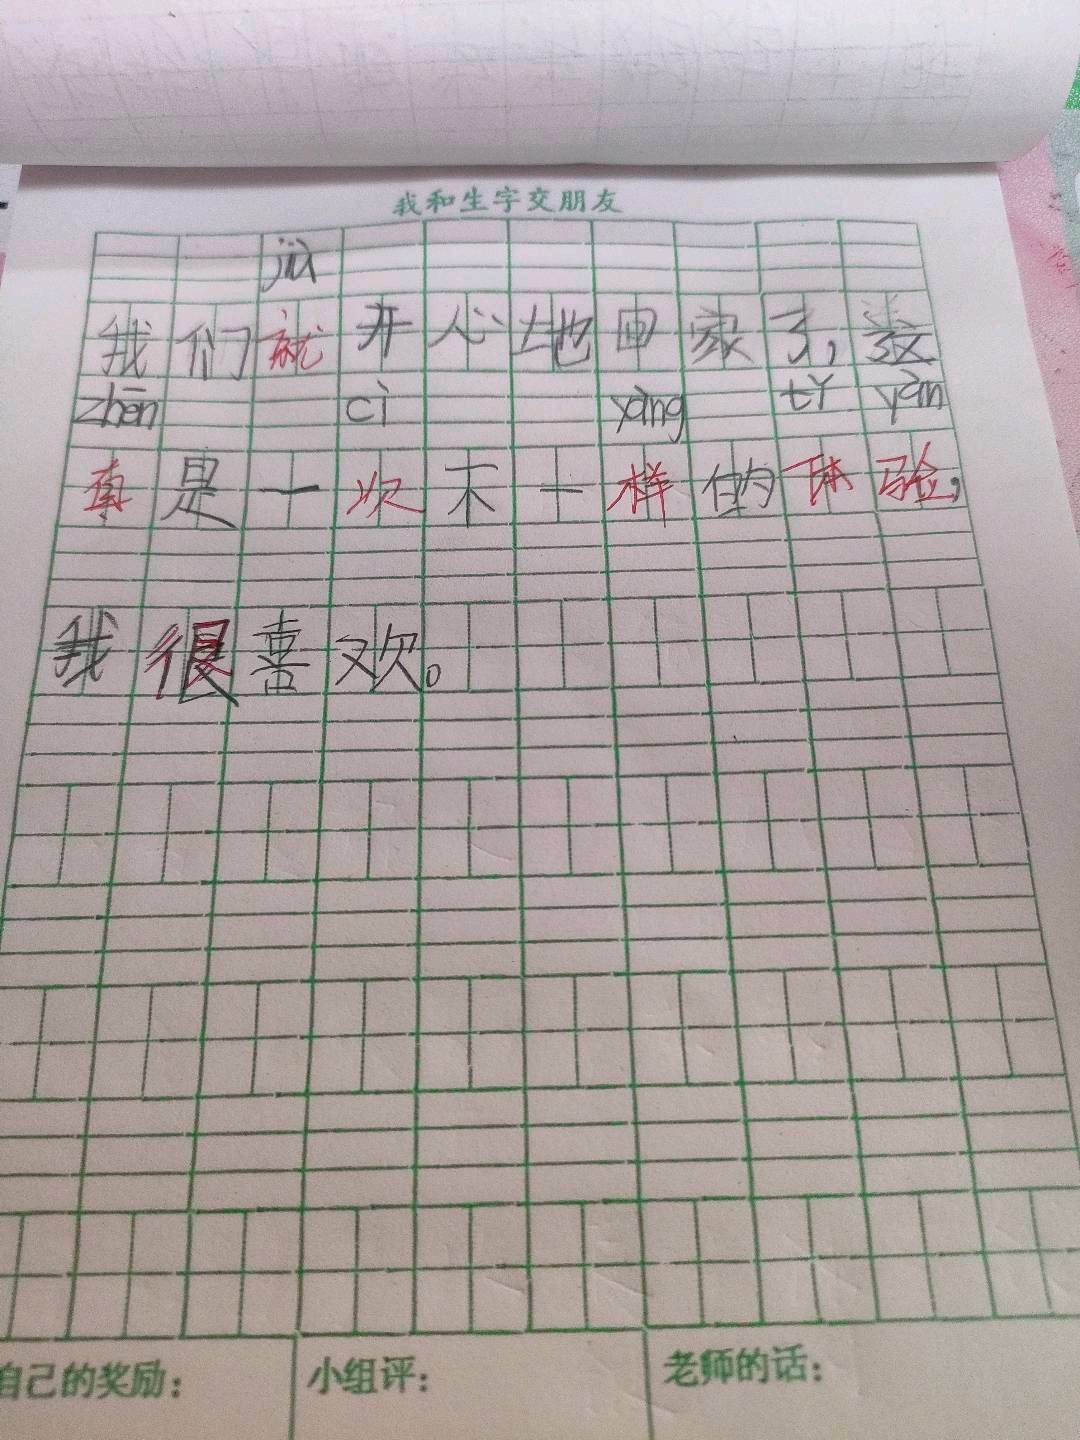 我和生字交朋友
jiù
我们就开心地回家了,这
zhēn cì yàng tǐ yàn
真是一次不一样的体验,
我很喜欢。
自己的奖励:
小组评:
老师的话: